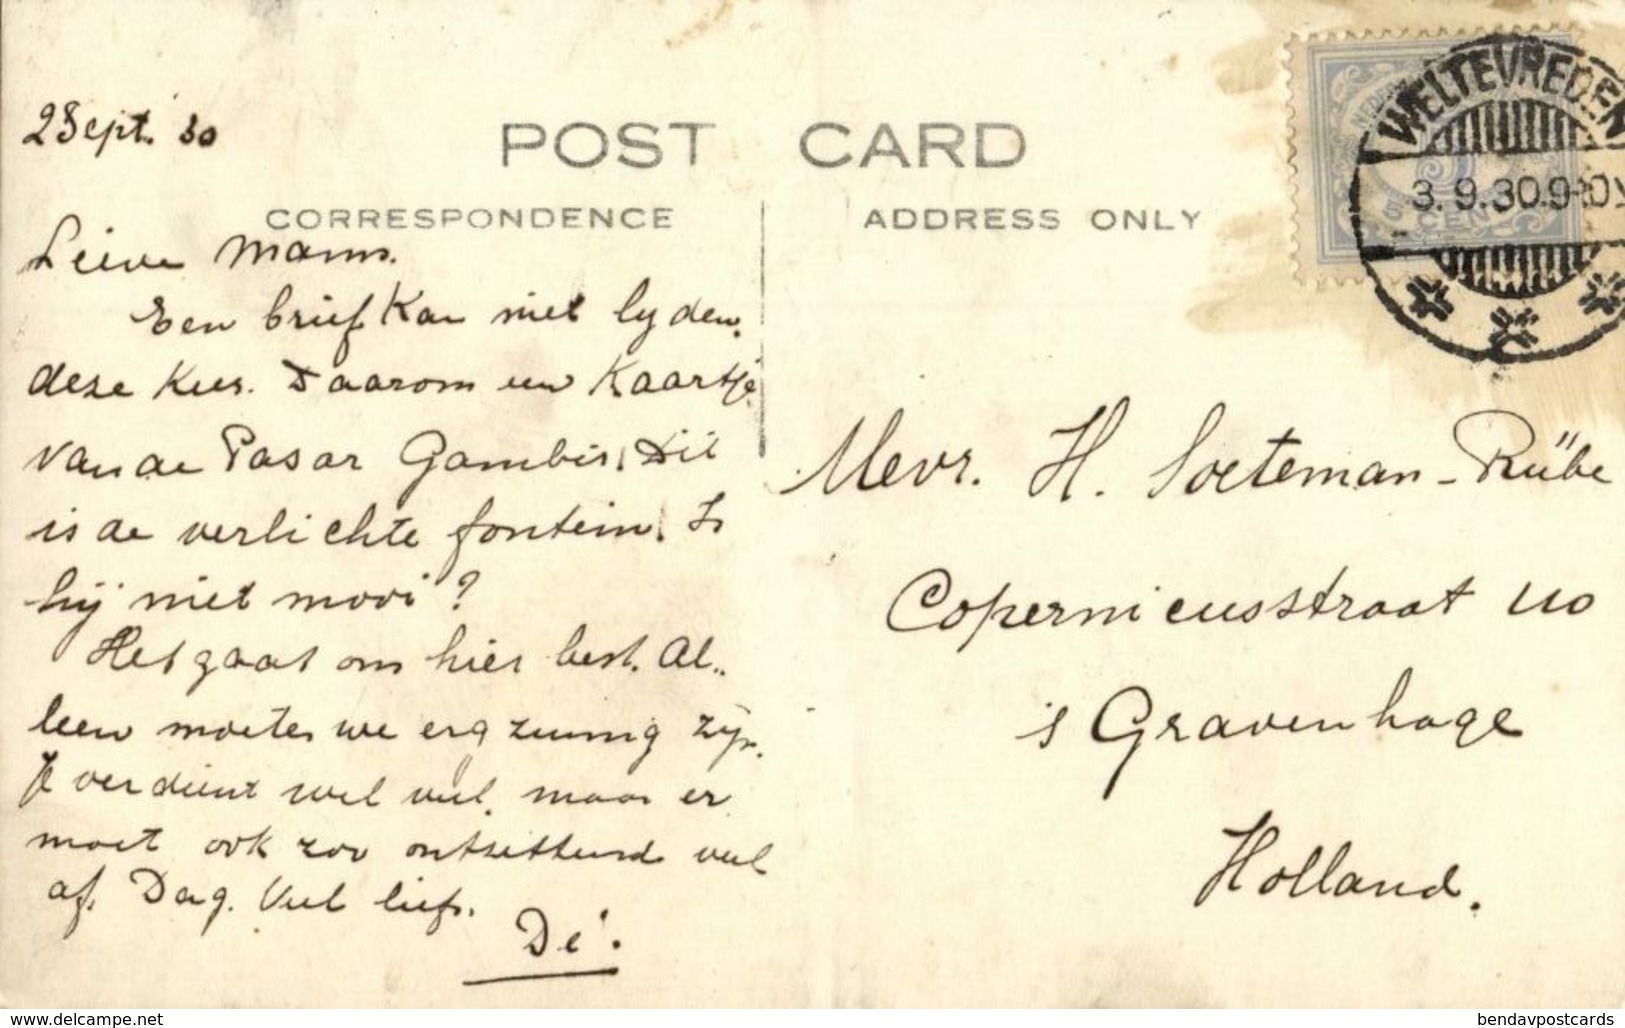 2 Sept. 30
POST CARD
CORRESPONDENCE
ADDRESS ONLY
WELTEVREDEN
3.9.30.9-10V
NEDER
5
CENT
Lieve Mams.
Een brief kan niet lijden
deze keer. Daarom een kaartje
van de Pasar Gambir. Dit
is de verlichte fontein. Is
hij niet mooi?
Het gaat ons hier best. Al..
leen moeten we erg zuinig zijn.
Je verdient wel veel, maar er
moet ook zoo ontzettend veel
af. Dag. Veel liefs.
Dé.
Mevr. H. Soeteman-Rübe
Copernicusstraat 110
's Gravenhage
Holland.
www.delcampe.net
bendavpostcards